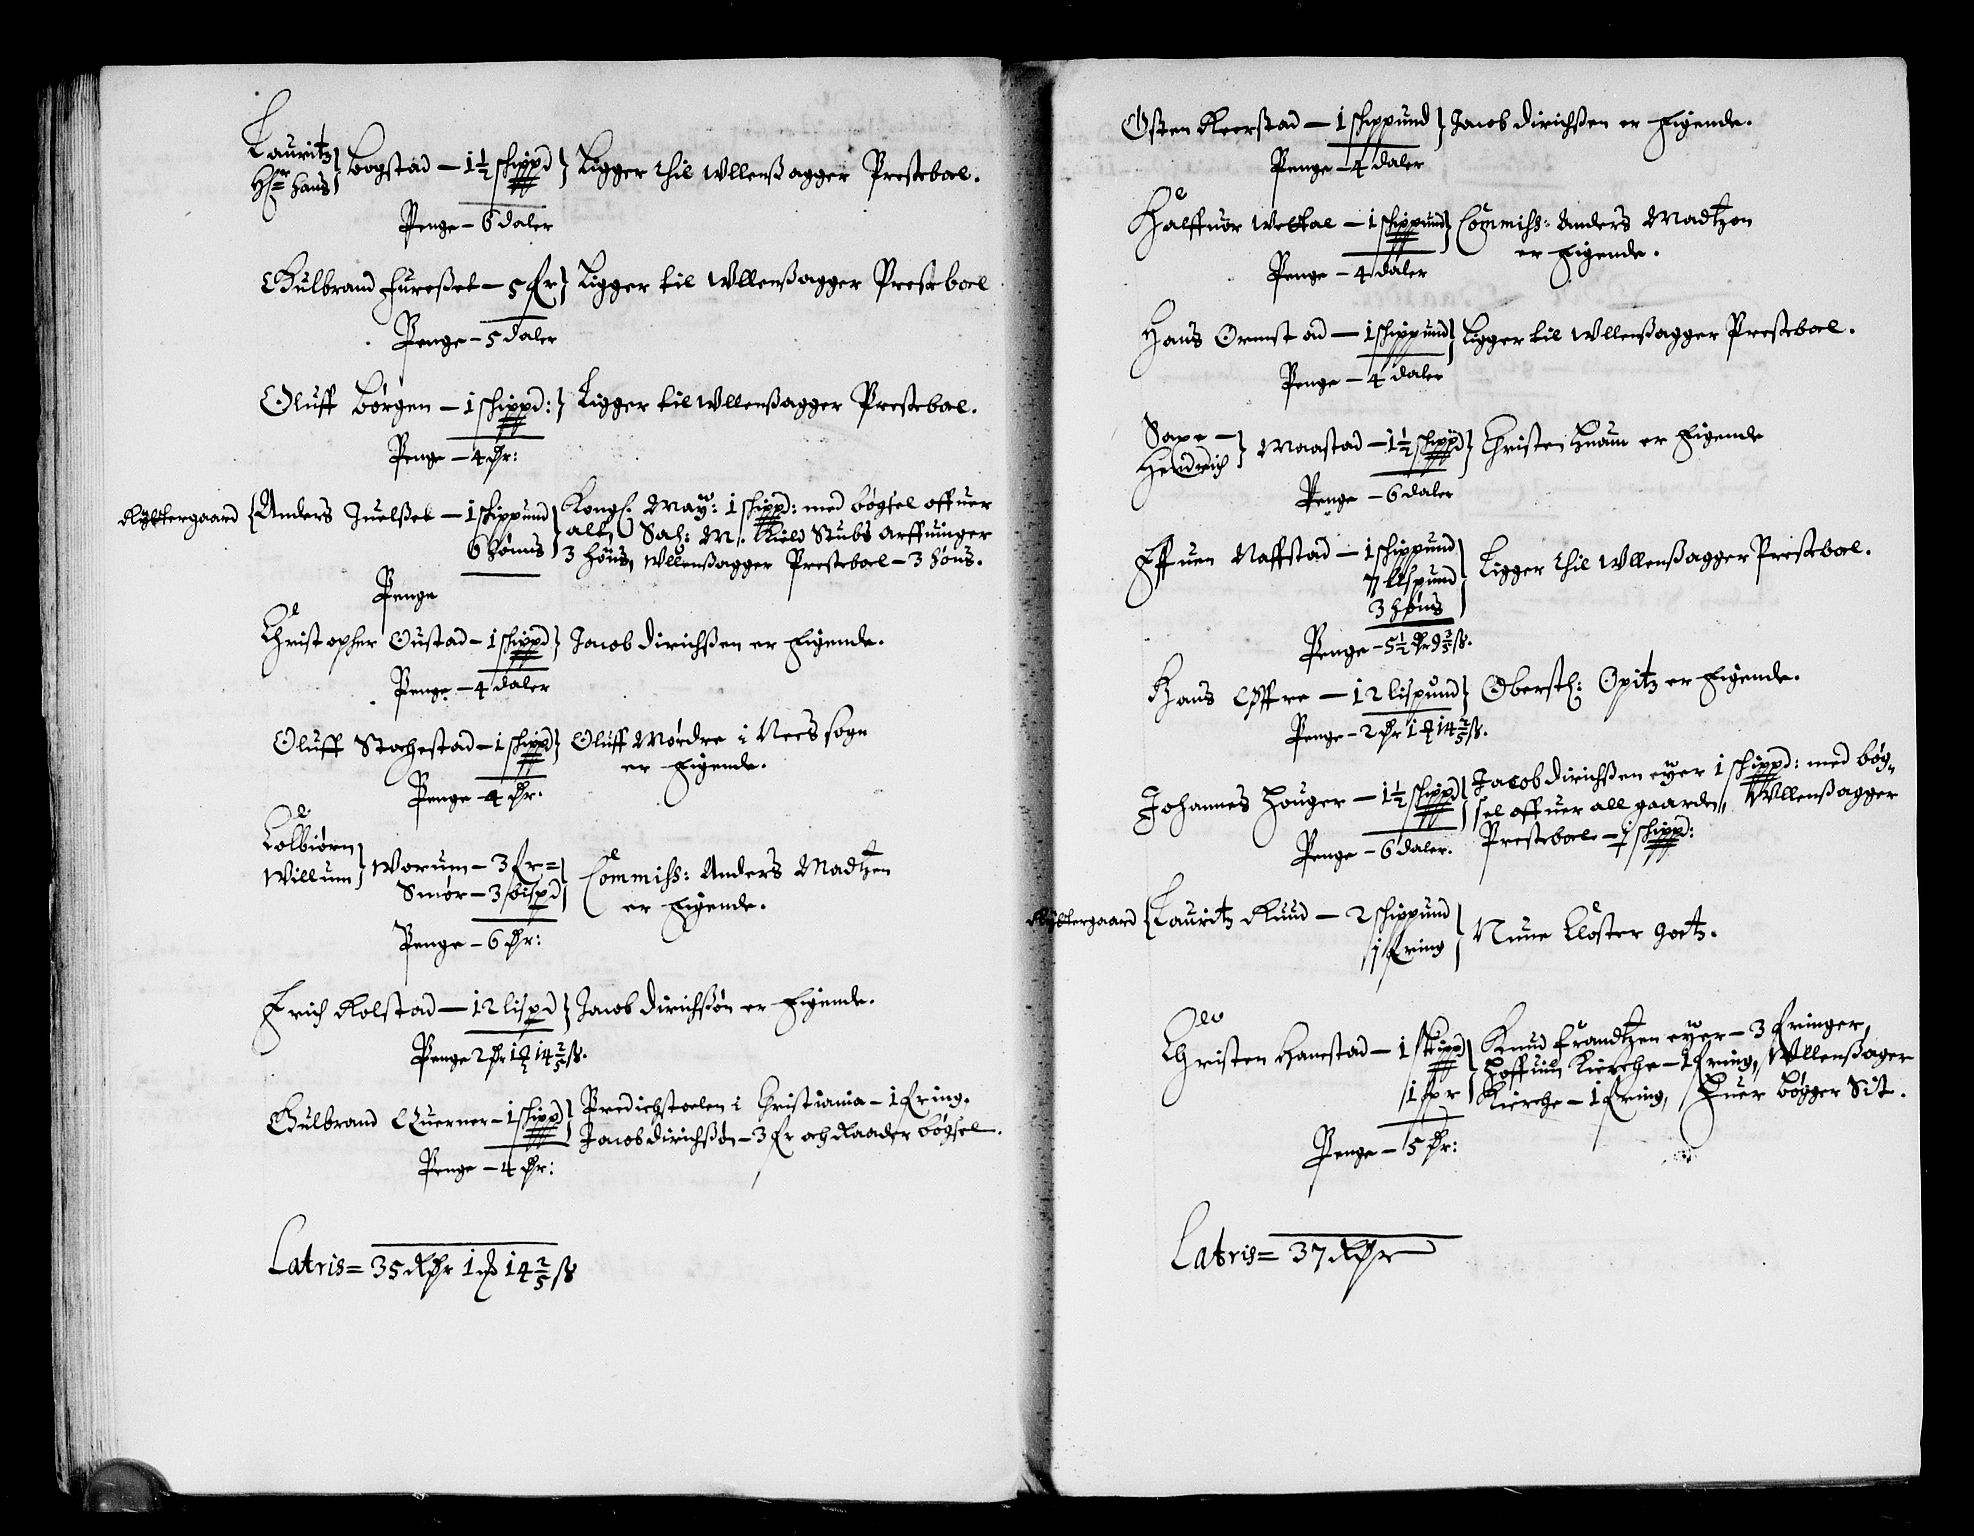 Lauritz
Hans } Bogstad – 1½ schippd } Ligger thil Wllensagger Presteboel.
Penge – 6 daler
Gulbrand Furesset – 5 fr } Ligger til Wllensagger Presteboel
Penge – 5 daler
Oluff Børgen – 1 schippd: } Ligger til Wllensagger Presteboel.
Penge – 4 dr:
Ryttergaard { Anders Juelsset – 1 schippund } Kongl: May: 1 schippd: med bøgsel offuer
6 høns } alt, Sal: M: Kield Stubs Arffuinger
3 høns, Wllensagger Presteboel – 3 høns.
Penge
Christopher Oustad – 1 schippd } Jacob Dirichssen er Eigende.
Penge – 4 daler
Oluff Stochestad – 1 schippd } Oluff Mørdre i Nees sogn
er Eigende.
Penge 4 dr.
Tolbiørn
Willum } Worum – 3 fr. =
Smør – 3 bispd } Commiss: Anders Madtzen
er Eigende.
Penge – 6 dr:
Erich Rolstad – 12 lispd } Jacob Dirichssøn er Eigende.
Penge 2 dr 1 ₰ 14 2/5 ß.
Gulbrand Querner – 1 schippd } Predichstoelen i Christiania – 1 fring.
Jacob Dirichssøn – 3 fr och Raader bøgsel.
Penge – 4 dr:
Latris = 35 Rdr 1 ₰ 14 2/5 ß
Østen Reerstad – 1 schippund } Jacob Dirichssen er Eigende.
Penge – 4 daler
Halffuor Wettal – 1 schippund } Commiss: Anders Madtzen
er Eigende.
Penge – 4 daler
Hans Ormstad – 1 schippund } Ligger til Wllensagger Presteboel.
Penge – 4 daler
Saxe –
Hendrich } Maastad – 1½ schippd } Christen er Eigende
Penge – 6 daler
Effuen Naffstad – 1 schippund
7 lispund
3 høns } Ligger thil Wllensagger Presteboel.
Penge – 5½ dr 9 3/5 ß.
Hans Øffre – 12 lispund } Oberstl: Opitz er Eigende.
Penge – 2 dr 1 ₰ 14 2/5 ß.
Johannes Houger – 1½ schippd } Jacob Dirichssen eyer 1 schippd: med bøg-
sel offuer all gaarden, Wllensagger
Presteboel – ½ schippd:
Penge – 6 daler.
Ryttergaard { Lauritz Ruud – 2 schippund
1 fring } Nune Closter Goetz.
Olu
Christen Hanestad – 1 skippd
1 fr } Knud Frandtzen eyer – 3 fringer,
Hoffuin Kierche – 1 fring, Wllensager
Kierche – 1 fring, Huer bøgger Sit.
Penge – 5 dr:
Latris = 37 Rdr